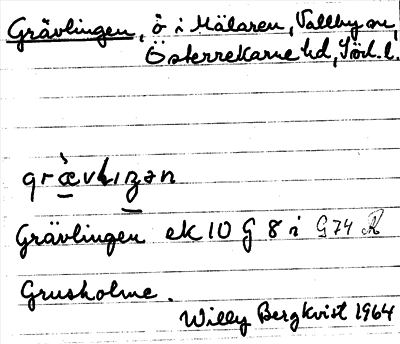 Grävlingen, ö i Mälaren, Vallby sn,
Österrekarne hd, Söd. l.
græ̀vlıŋən
Grävlingen ek 10 G 8 i G74
Grusholme.
Willy Bergkvist 1964